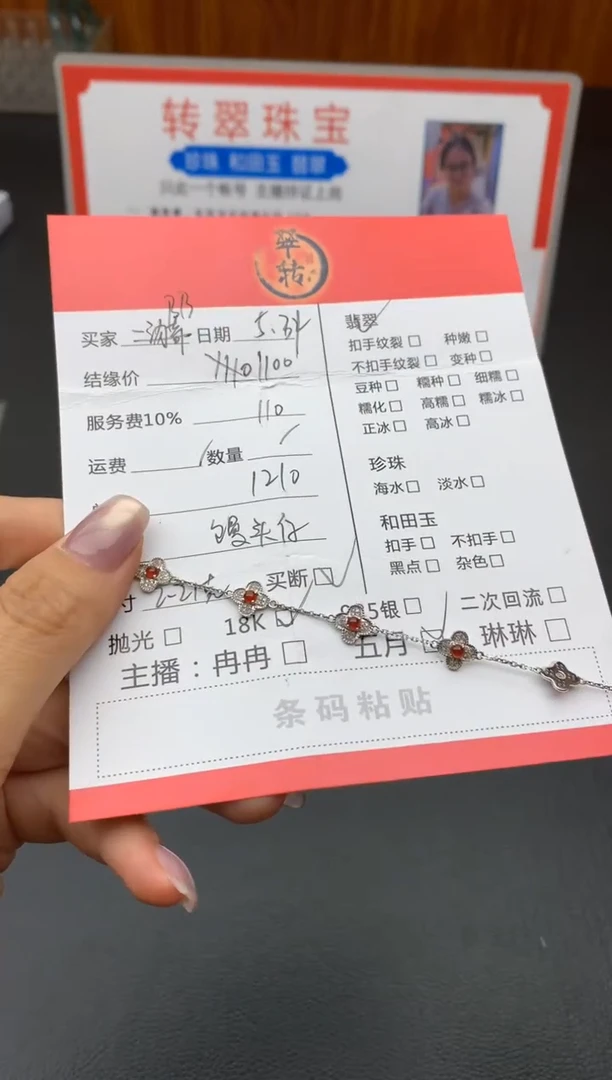 转翠珠宝
珍珠 和田玉 翡翠
只此一个帐号 主播持证上岗
翠转
买家 日期 5.31
结缘价 1100
服务费10% 110
运费 数量
1210
馒头仔
买断
寸
抛光 18K 925银 二次回流
主播：冉冉 五月 琳琳
条码粘贴
翡翠
扣手纹裂 种嫩
不扣手纹裂 变种
豆种 糯种 细糯
糯化 高糯 糯冰
正冰 高冰
珍珠
海水 淡水
和田玉
扣手 不扣手
黑点 杂色